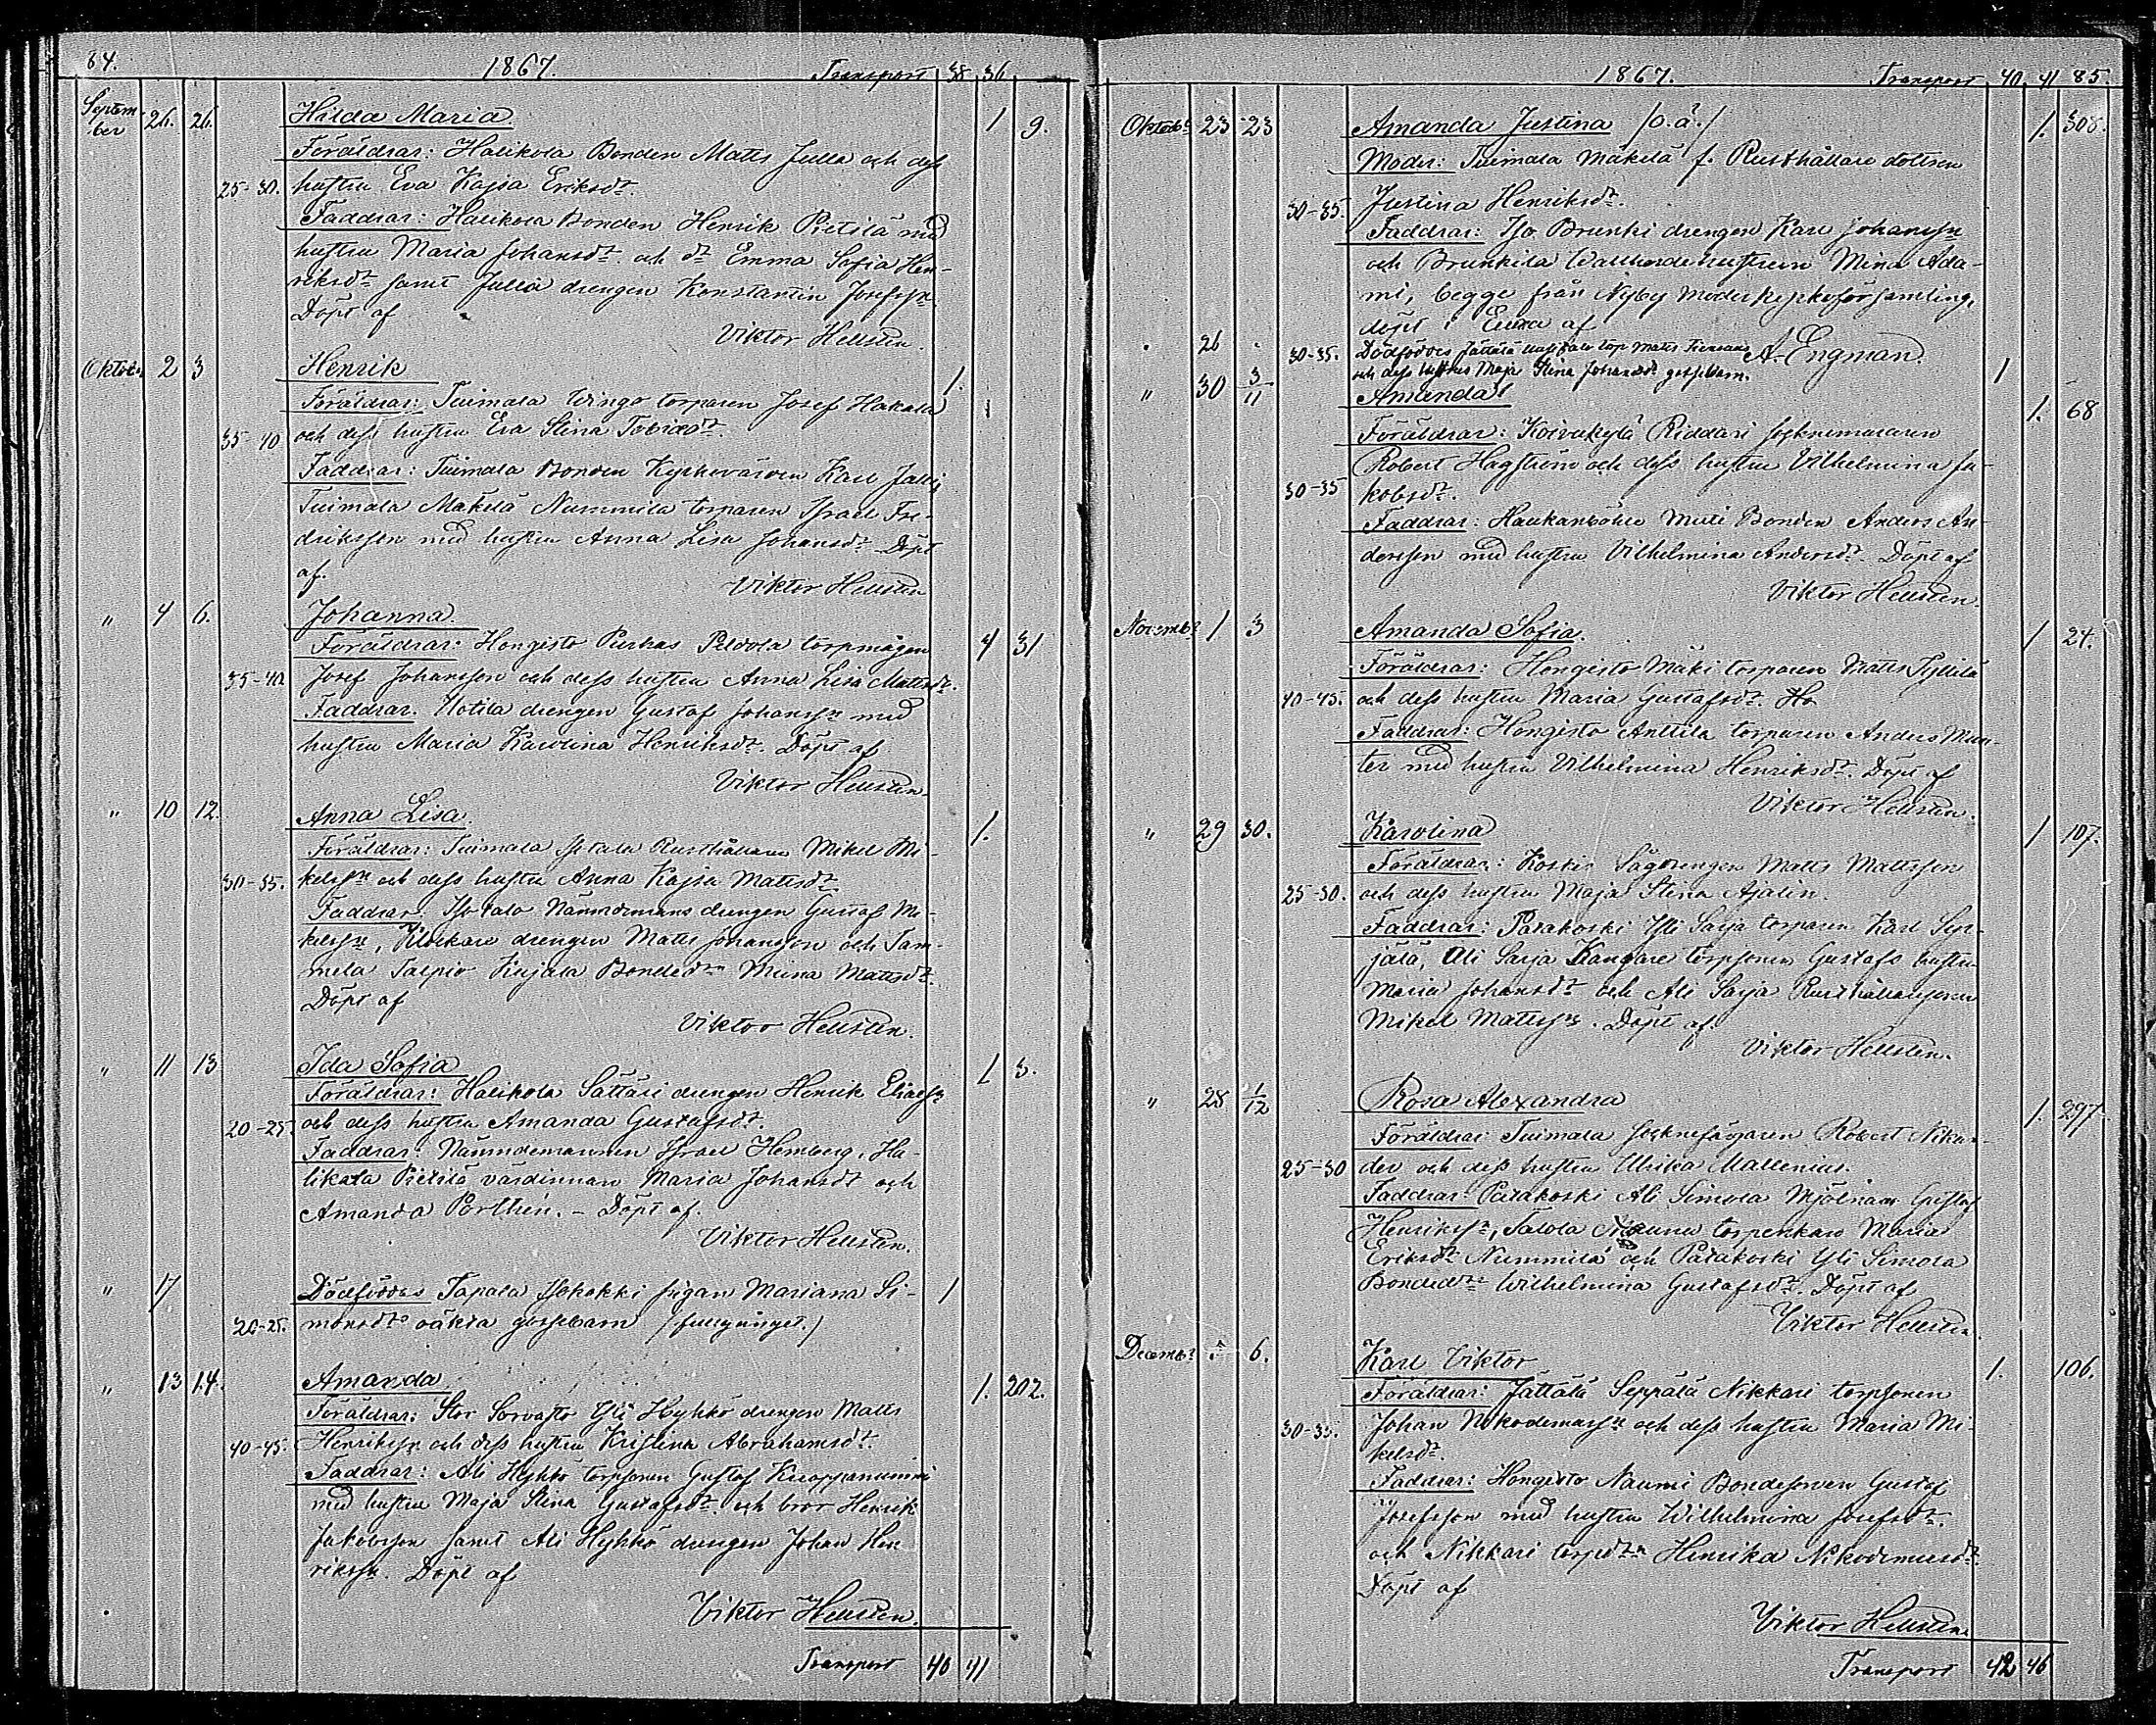 84.
1867.
Transport 38 36
Septem-
ber 26. 26. Hilda Maria. 1 9.
Föräldrar: Halikola Bonden Matts Julla och dess
25-30. hustru Eva Kajsa Eriksdr.
Faddrar: Halikola Bonden Henrik Pietilä med
hustru Maria Johansdr. och dr Emma Sofia Hen-
riksdr samt Julla drengen Konstantin Josefsn.
Döpt af
Viktor Hellsten.
Oktob. 2 3 Henrik 1.
Föräldrar: Tuimala Wingo torparen Josef Hakala
35-40 och dess hustru Eva Stina Tobiasdr.
Faddrar: Tuimala Bonden Kyrkovärden Karl Jalli,
Tuimala Mäkelä Nummila torparen Israel Fre-
driksson med hustru Anna Lisa Johansdr. Döpt
af.
Viktor Hellsten
" 4 6. Johanna. 1 31
Föräldrar: Hongisto Purhas Peldola torpmågen
35-40. Josef Johansson och dess hustru Anna Lisa Mattsdr.
Faddrar. Uotila drengen Gustaf Johanssn med
hustru Maria Karolina Henriksdr. Döpt af
Viktor Hellsten.
" 10 12. Anna Lisa. 1.
Föräldrar: Tuimala Isotalo Rusthållaren Mikel Mi-
30-35. kelssn och dess hustru Anna Kajsa Mattsdr
Faddrar. Isotalo Nämndemans drengen Gustaf Mi-
kelssn, Klockare drengen Matts Johansson och Tam-
mela Talpio Kujala Bondedrn Miina Mattsdr.
Döpt af
Viktor Hellsten.
" 11 13 Ida Sofia 1 3.
Föräldrar: Halikola Sättäri drengen Henrik Eliassn
20-25. och dess hustru Amanda Gustafsdr.
Faddrar: Nämndemannen Israel Hemberg, Ha-
likola Pietilä värdinnan Maria Johansdr och
Amanda Porthén. – Döpt af.
Viktor Hellsten.
" 17 Dödföddes Tapala Isohokki pigan Mariana Si- 1
20-25. monsdrs oäkta gossebarn /fullgånget./
" 13 14. Amanda 1. 202.
Föräldrar: Stor Sorvasto Yli Hyhkö drengen Matts
40-45. Henrikssn och dess hustru Kristina Abrahamsdr.
Faddrar: Ali Hyhkö torpsonen Gustaf Knaapanummi
med hustru Maja Stina Gustafsdr. och bror Henrik
Jakobsson samt Ali Hyhkö drengen Johan Hen
rikssn. Döpt af
Viktor Hellsten.
Transport 40 41
1867.
Transport 40. 41 85.
Oktobr 23 23 Amanda Justina /o.ä./ 1. 308.
Moder: Tuimala Mäkelä f. Rusthållare dottren
30-35. Justina Henriksdr.
Faddrar: Iso Brunki drengen Karl Johanssn
och Brunkila Wallherde hustrun Mina Ada-
mi, begge från Nyby moderkyrkoförsamling,
döpt i Eura af
A. Engman.
" 26 " 30-35. Dödföddes Jättälä Uusitalo torp. Matts
och dess hustrus Maja Stina Johansdr. gossebarn. 1
" 30 3/11 Amanda 1. 68
Föräldrar: Koivukylä Riddari socknemuraren
Robert Hagström och dess hustru Vilhelmina Ja-
30-35 kobsdr.
Faddrar: Haukanvuohi Muti Bonden Anders An-
dersson med hustru Vilhelmina Andersdr. Döpt af
Viktor Hellsten.
Novembr 1 3 Amanda Sofia. 1 24.
Föräldrar: Hongisto Mäki torparen Matts
40-45. och dess hustru Maria Gustafsdr. Ho
Faddrar: Hongisto Anttila torparen Anders Mun-
ter med hustru Vilhelmina Henriksdr. Döpt af
Viktor Hellsten.
" 29 30. Karolina 1 107.
Föräldrar: Koskis Sågdrengen Matts Mattsson
25-30. och dess hustru Maja Stina Ajalin.
Faddrar: Patakoski Yli Sarja torparen Karl
jälä, Ali Sarja Kangare torpsonen Gustafs hustru
Maria Johansdr och Ali Sarja Rusthållaresonen
Mikel Mattssn. Döpt af
Viktor Hellsten.
" 28 1/12 Rosa Alexandra 1. 297
Föräldrar Tuimala socknefärgaren Robert Nikan-
25-30 der och dess hustru Ulrika Mallenius.
Faddrar: Patakoski Ali Simola Mjölnare Gustaf
Henrikssn, Talola torpenkan Maria
Eriksdr Nummila och Patakoski Yli Simola
Bondedrn Wilhelmina Gustafsdr. Döpt af
Viktor Hellsten
Decembr 5 6. Karl Viktor 1. 106.
Föräldrar: Jättälä Seppälä Nikkari torpsonen
30-35. Johan Nikodemussn och dess hustru Maria Mi-
kelsdr.
Faddrar: Hongisto Naumi Bondesonen Gustaf
Josefsson med hustru Wilhelmina Josefsdr.
och Nikkari torpdrn Henrika Nikodemusdr.
Döpt af
Viktor Hellsten.
Transport 42 46